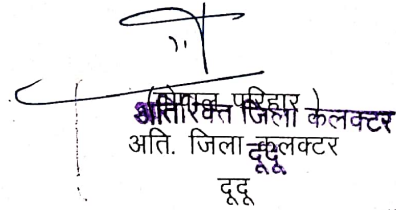 परिहार )
अतिरिक्त जिला कलक्टर
अति. जिला कलक्टर
दूदू
दूदू